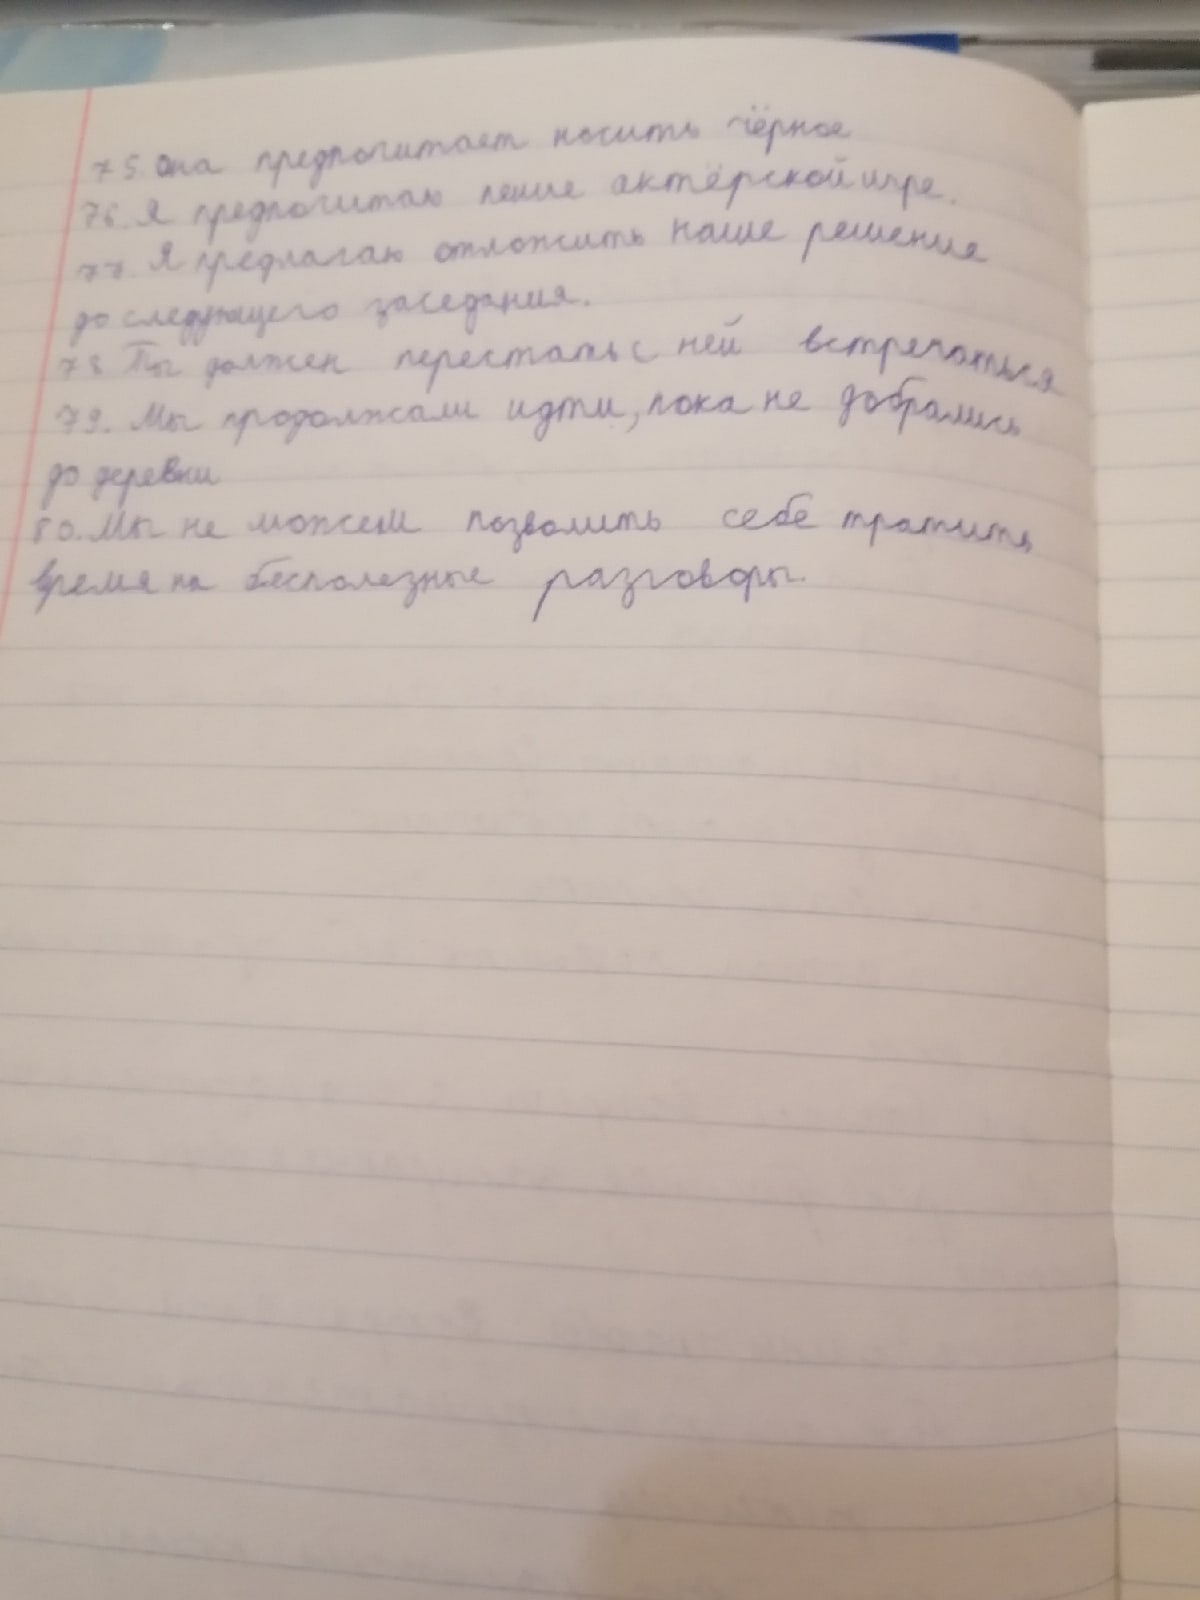 75. Она предпочитает носить чёрное
76. Я предпочитаю пение актёрской игре.
77. Я предлагаю отложить наше решения
до следующего заседания.
78 Ты должен перестать с ней встречаться
79. Мы продолжали идти, пока не добрались
до деревни
80. Мы не можем позволить себе тратить
время на бесполезные разговоры.